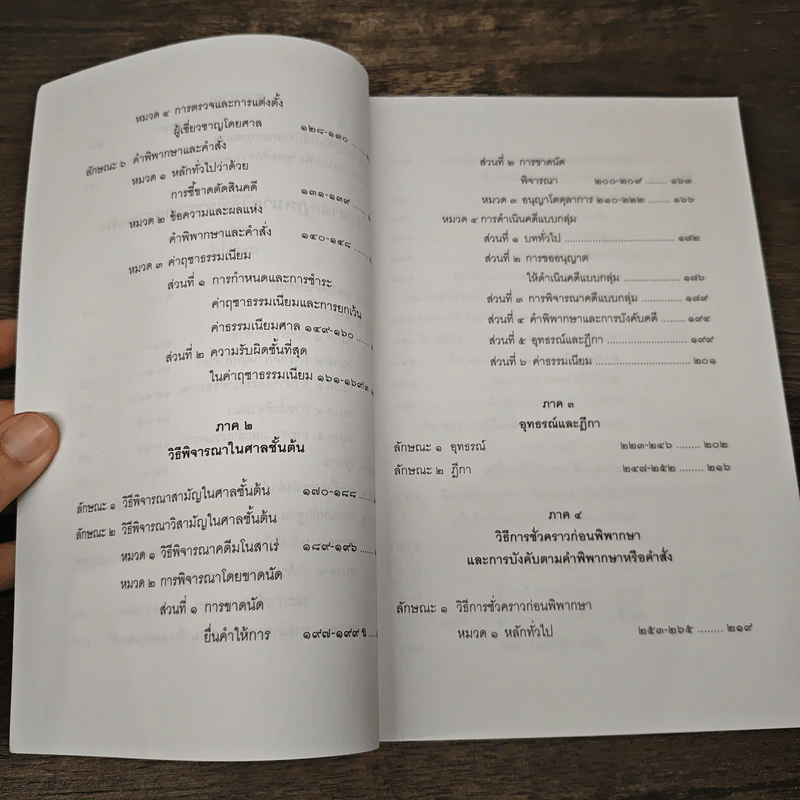 หมวด ๔ การตรวจและการแต่งตั้ง
ผู้เชี่ยวชาญโดยศาล ๑๒๘-๑๓๐
ลักษณะ ๖ คำพิพากษาและคำสั่ง
หมวด ๑ หลักทั่วไปว่าด้วย
การชี้ขาดตัดสินคดี ๑๓๑-๑๓๙
หมวด ๒ ข้อความและผลแห่ง
คำพิพากษาและคำสั่ง ๑๔๐-๑๔๘
หมวด ๓ ค่าฤชาธรรมเนียม
ส่วนที่ ๑ การกำหนดและการชำระ
ค่าฤชาธรรมเนียมและการยกเว้น
ค่าธรรมเนียมศาล ๑๔๙-๑๖๐
ส่วนที่ ๒ ความรับผิดชั้นที่สุด
ในค่าฤชาธรรมเนียม ๑๖๑-๑๖๙
ภาค ๒
วิธีพิจารณาในศาลชั้นต้น
ลักษณะ ๑ วิธีพิจารณาสามัญในศาลชั้นต้น ๑๗๐-๑๘๘ .....
ลักษณะ ๒ วิธีพิจารณาวิสามัญในศาลชั้นต้น
หมวด ๑ วิธีพิจารณาคดีมโนสาเร่ ๑๘๙-๑๙๖ ....
หมวด ๒ การพิจารณาโดยขาดนัด
ส่วนที่ ๑ การขาดนัด
ยื่นคำให้การ ๑๙๗-๑๙๙ ฉ ....
ส่วนที่ ๒ การขาดนัด
พิจารณา ๒๐๐-๒๐๙ ........ ๑๖๓
หมวด ๓ อนุญาโตตุลาการ ๒๑๐-๒๒๒ ........ ๑๖๖
หมวด ๔ การดำเนินคดีแบบกลุ่ม
ส่วนที่ ๑ บททั่วไป ........................ ๑๗๒
ส่วนที่ ๒ การขออนุญาต
ให้ดำเนินคดีแบบกลุ่ม ........................ ๑๗๖
ส่วนที่ ๓ การพิจารณาคดีแบบกลุ่ม .............. ๑๗๙
ส่วนที่ ๔ คำพิพากษาและการบังคับคดี ........ ๑๙๔
ส่วนที่ ๕ อุทธรณ์และฎีกา ........................ ๑๙๙
ส่วนที่ ๖ ค่าธรรมเนียม ........................ ๒๐๑
ภาค ๓
อุทธรณ์และฎีกา
ลักษณะ ๑ อุทธรณ์ ๒๒๓-๒๔๖ ........ ๒๐๒
ลักษณะ ๒ ฎีกา ๒๔๗-๒๕๒ ........ ๒๑๖
ภาค ๔
วิธีการชั่วคราวก่อนพิพากษา
และการบังคับตามคำพิพากษาหรือคำสั่ง
ลักษณะ ๑ วิธีการชั่วคราวก่อนพิพากษา
หมวด ๑ หลักทั่วไป ๒๕๓-๒๖๕ ........ ๒๑๙